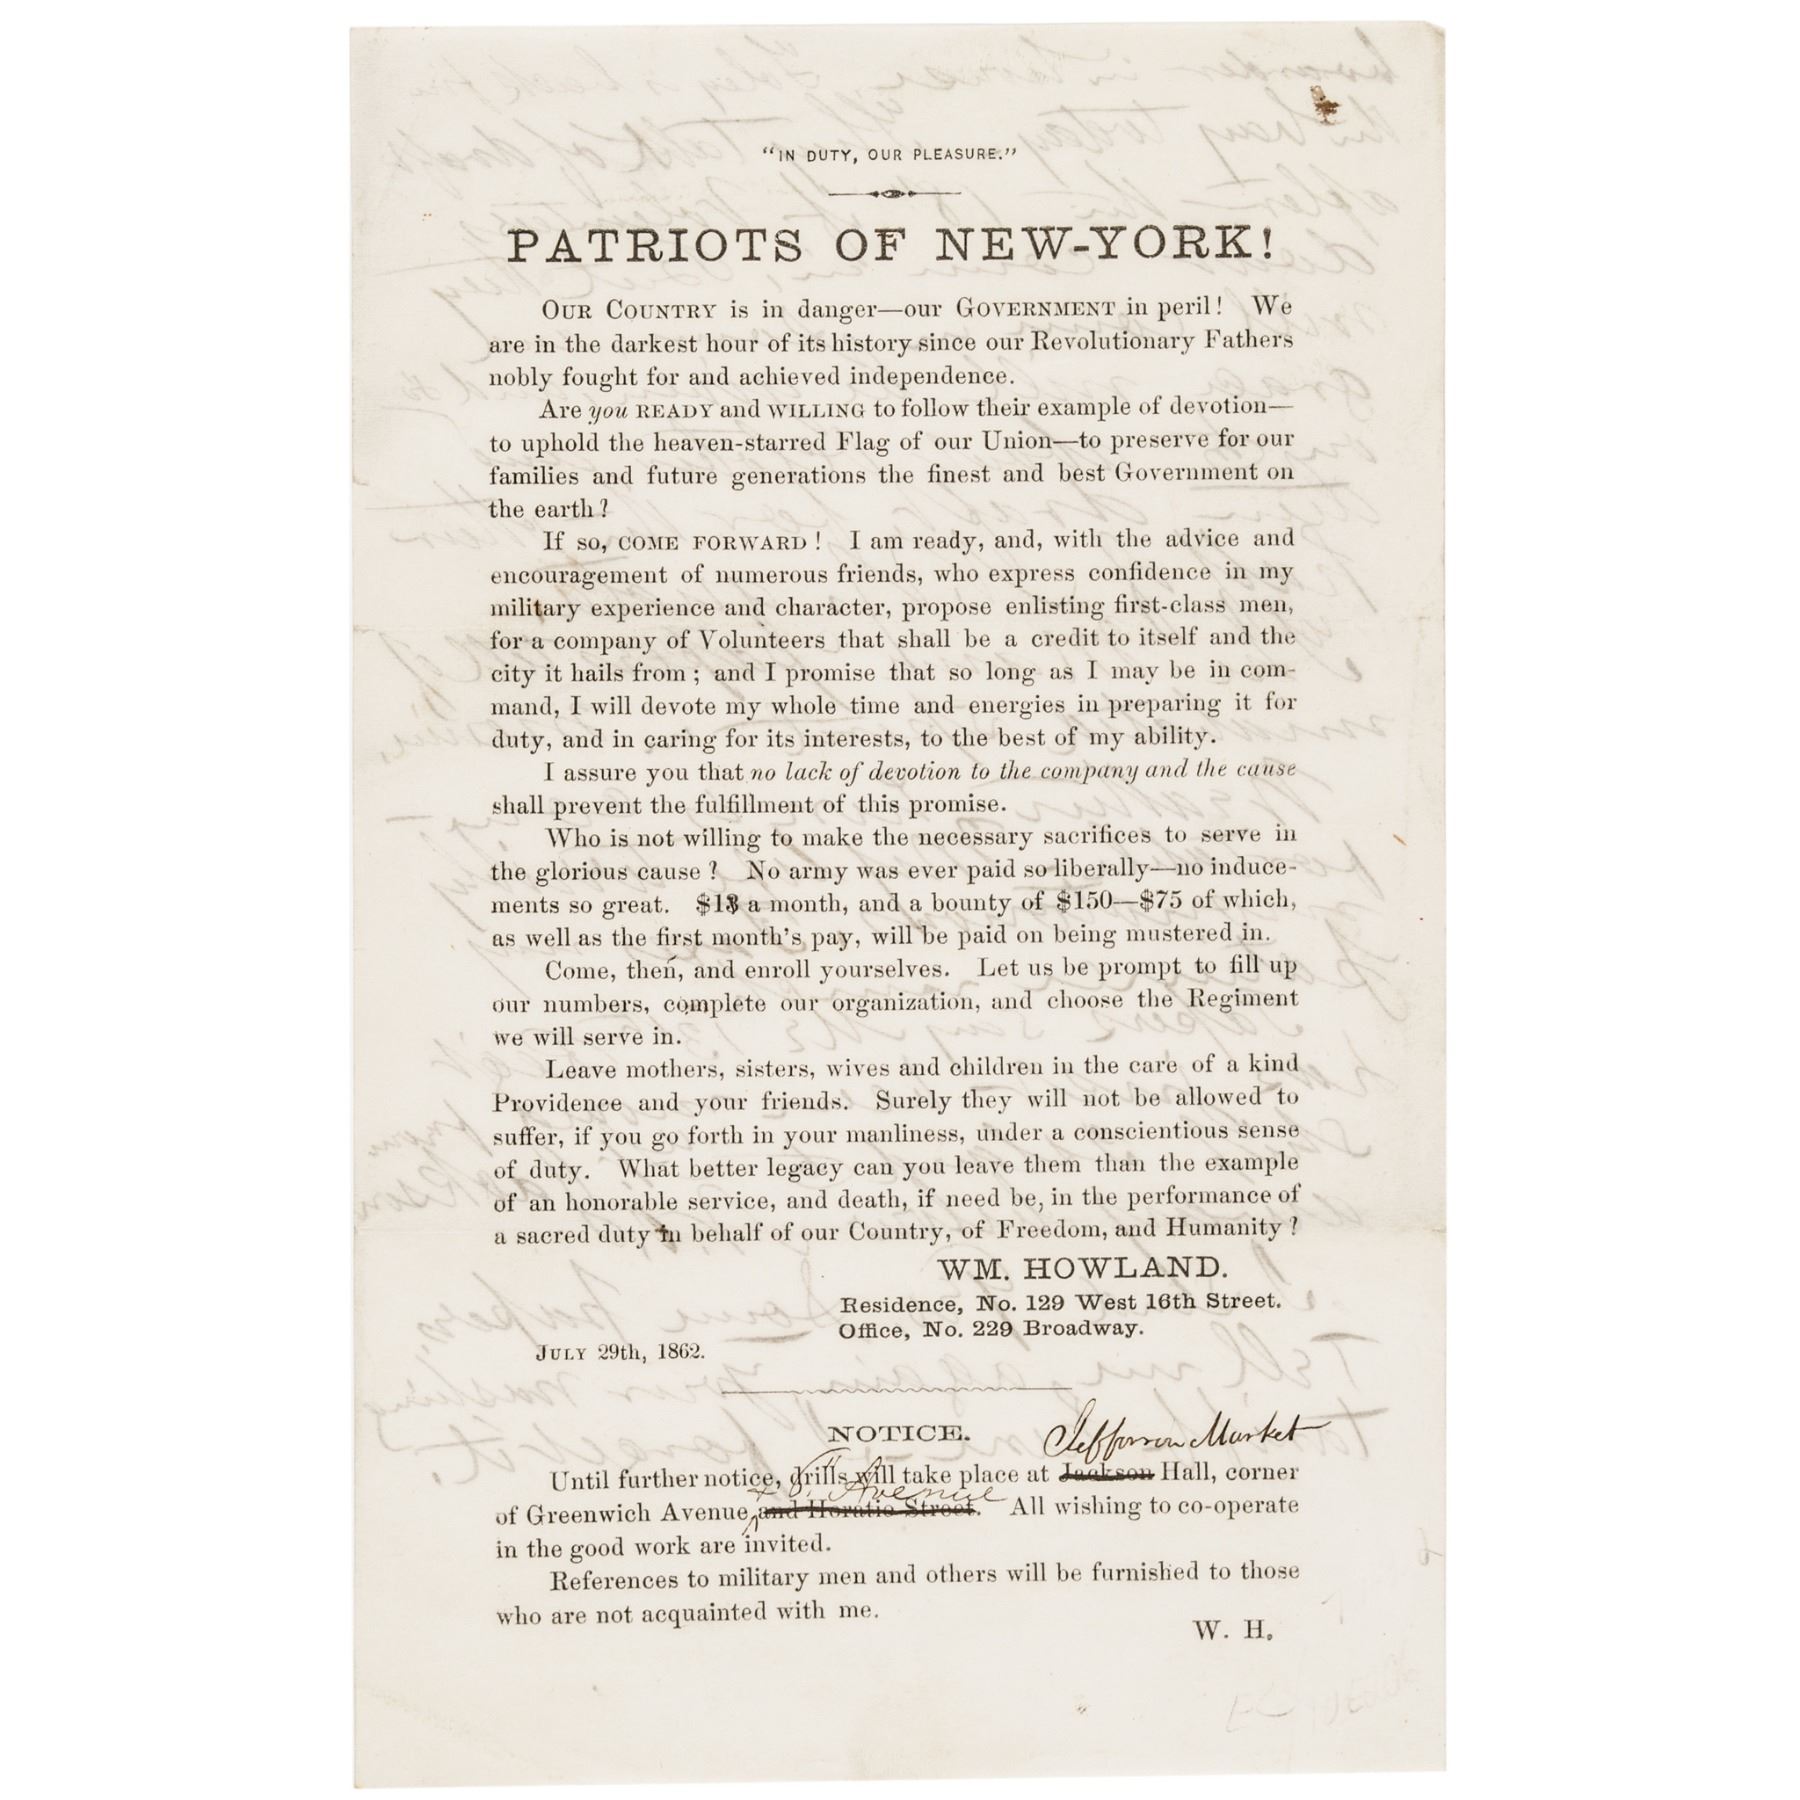 “IN DUTY, OUR PLEASURE.”
PATRIOTS OF NEW-YORK!
OUR COUNTRY is in danger—our GOVERNMENT in peril! We
are in the darkest hour of its history since our Revolutionary Fathers
nobly fought for and achieved independence.
Are you READY and WILLING to follow their example of devotion—
to uphold the heaven-starred Flag of our Union—to preserve for our
families and future generations the finest and best Government on
the earth?
If so, COME FORWARD! I am ready, and, with the advice and
encouragement of numerous friends, who express confidence in my
military experience and character, propose enlisting first-class men,
for a company of Volunteers that shall be a credit to itself and the
city it hails from; and I promise that so long as I may be in com-
mand, I will devote my whole time and energies in preparing it for
duty, and in caring for its interests, to the best of my ability.
I assure you that no lack of devotion to the company and the cause
shall prevent the fulfillment of this promise.
Who is not willing to make the necessary sacrifices to serve in
the glorious cause? No army was ever paid so liberally—no induce-
ments so great. $13 a month, and a bounty of $150—$75 of which,
as well as the first month's pay, will be paid on being mustered in.
Come, then, and enroll yourselves. Let us be prompt to fill up
our numbers, complete our organization, and choose the Regiment
we will serve in.
Leave mothers, sisters, wives and children in the care of a kind
Providence and your friends. Surely they will not be allowed to
suffer, if you go forth in your manliness, under a conscientious sense
of duty. What better legacy can you leave them than the example
of an honorable service, and death, if need be, in the performance of
a sacred duty in behalf of our Country, of Freedom, and Humanity?
WM. HOWLAND.
Residence, No. 129 West 16th Street.
Office, No. 229 Broadway.
JULY 29th, 1862.
NOTICE.
Jefferson Market
Until further notice, drills will take place at Jackson Hall, corner
& 6th Avenue
of Greenwich Avenue and Horatio Street. All wishing to co-operate
in the good work are invited.
References to military men and others will be furnished to those
who are not acquainted with me.
W. H.